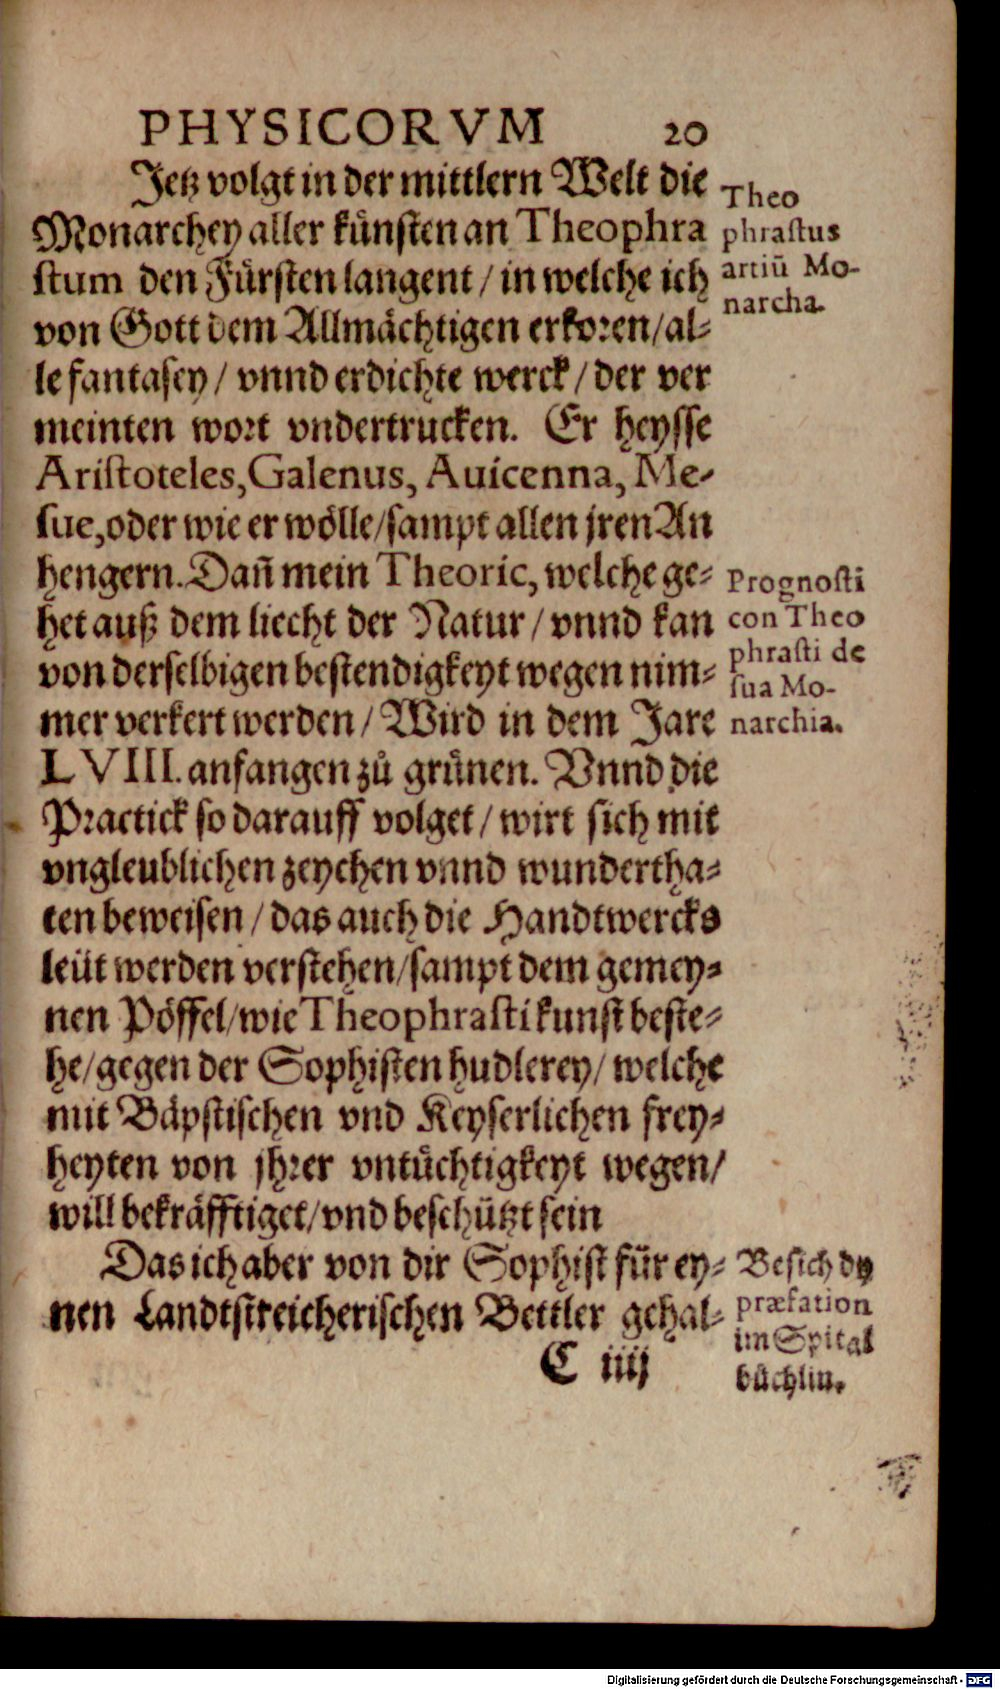 PHYSICORVM 20
Jetz volgt in der mittlern Welt die
Monarchey aller künsten an Theophra
stum den Fürsten langent / in welche ich
von Gott dem Allmächtigen erkoren/al-
le fantasey / vnnd erdichte werck / der ver
meinten wort vndertrucken. Er heysse
Aristoteles, Galenus, Auicenna, Me-
sue, oder wie er wölle/sampt allen jren An
hengern. Dañ mein Theoric, welche ge-
het auß dem liecht der Natur / vnnd kan
von derselbigen bestendigkeyt wegen nim-
mer verkert werden / Wird in dem Jare
LVIII. anfangen zů grünen. Vnnd die
Practick so darauff volget / wirt sich mit
vngleublichen zeychen vnnd wundertha-
ten beweisen / das auch die Handtwercks
leüt werden verstehen/sampt dem gemey-
nen Pöffel/wie Theophrasti kunst beste-
he/gegen der Sophisten hudlerey/ welche
mit Bäpstischen vnd Keyserlichen frey-
heyten von jhrer vntüchtigkeyt wegen/
will bekräfftiget/vnd beschützt sein
Das ich aber von dir Sophist für ey-
nen Landtstreicherischen Bettler gehal-
C iiij
Theo
phrastus
artiū Mo-
narcha.
Prognosti
con Theo
phrasti de
sua Mo-
narchia.
Besich dy
præfation
im Spital
büchlin.
Digitalisierung gefördert durch die Deutsche Forschungsgemeinschaft - DFG